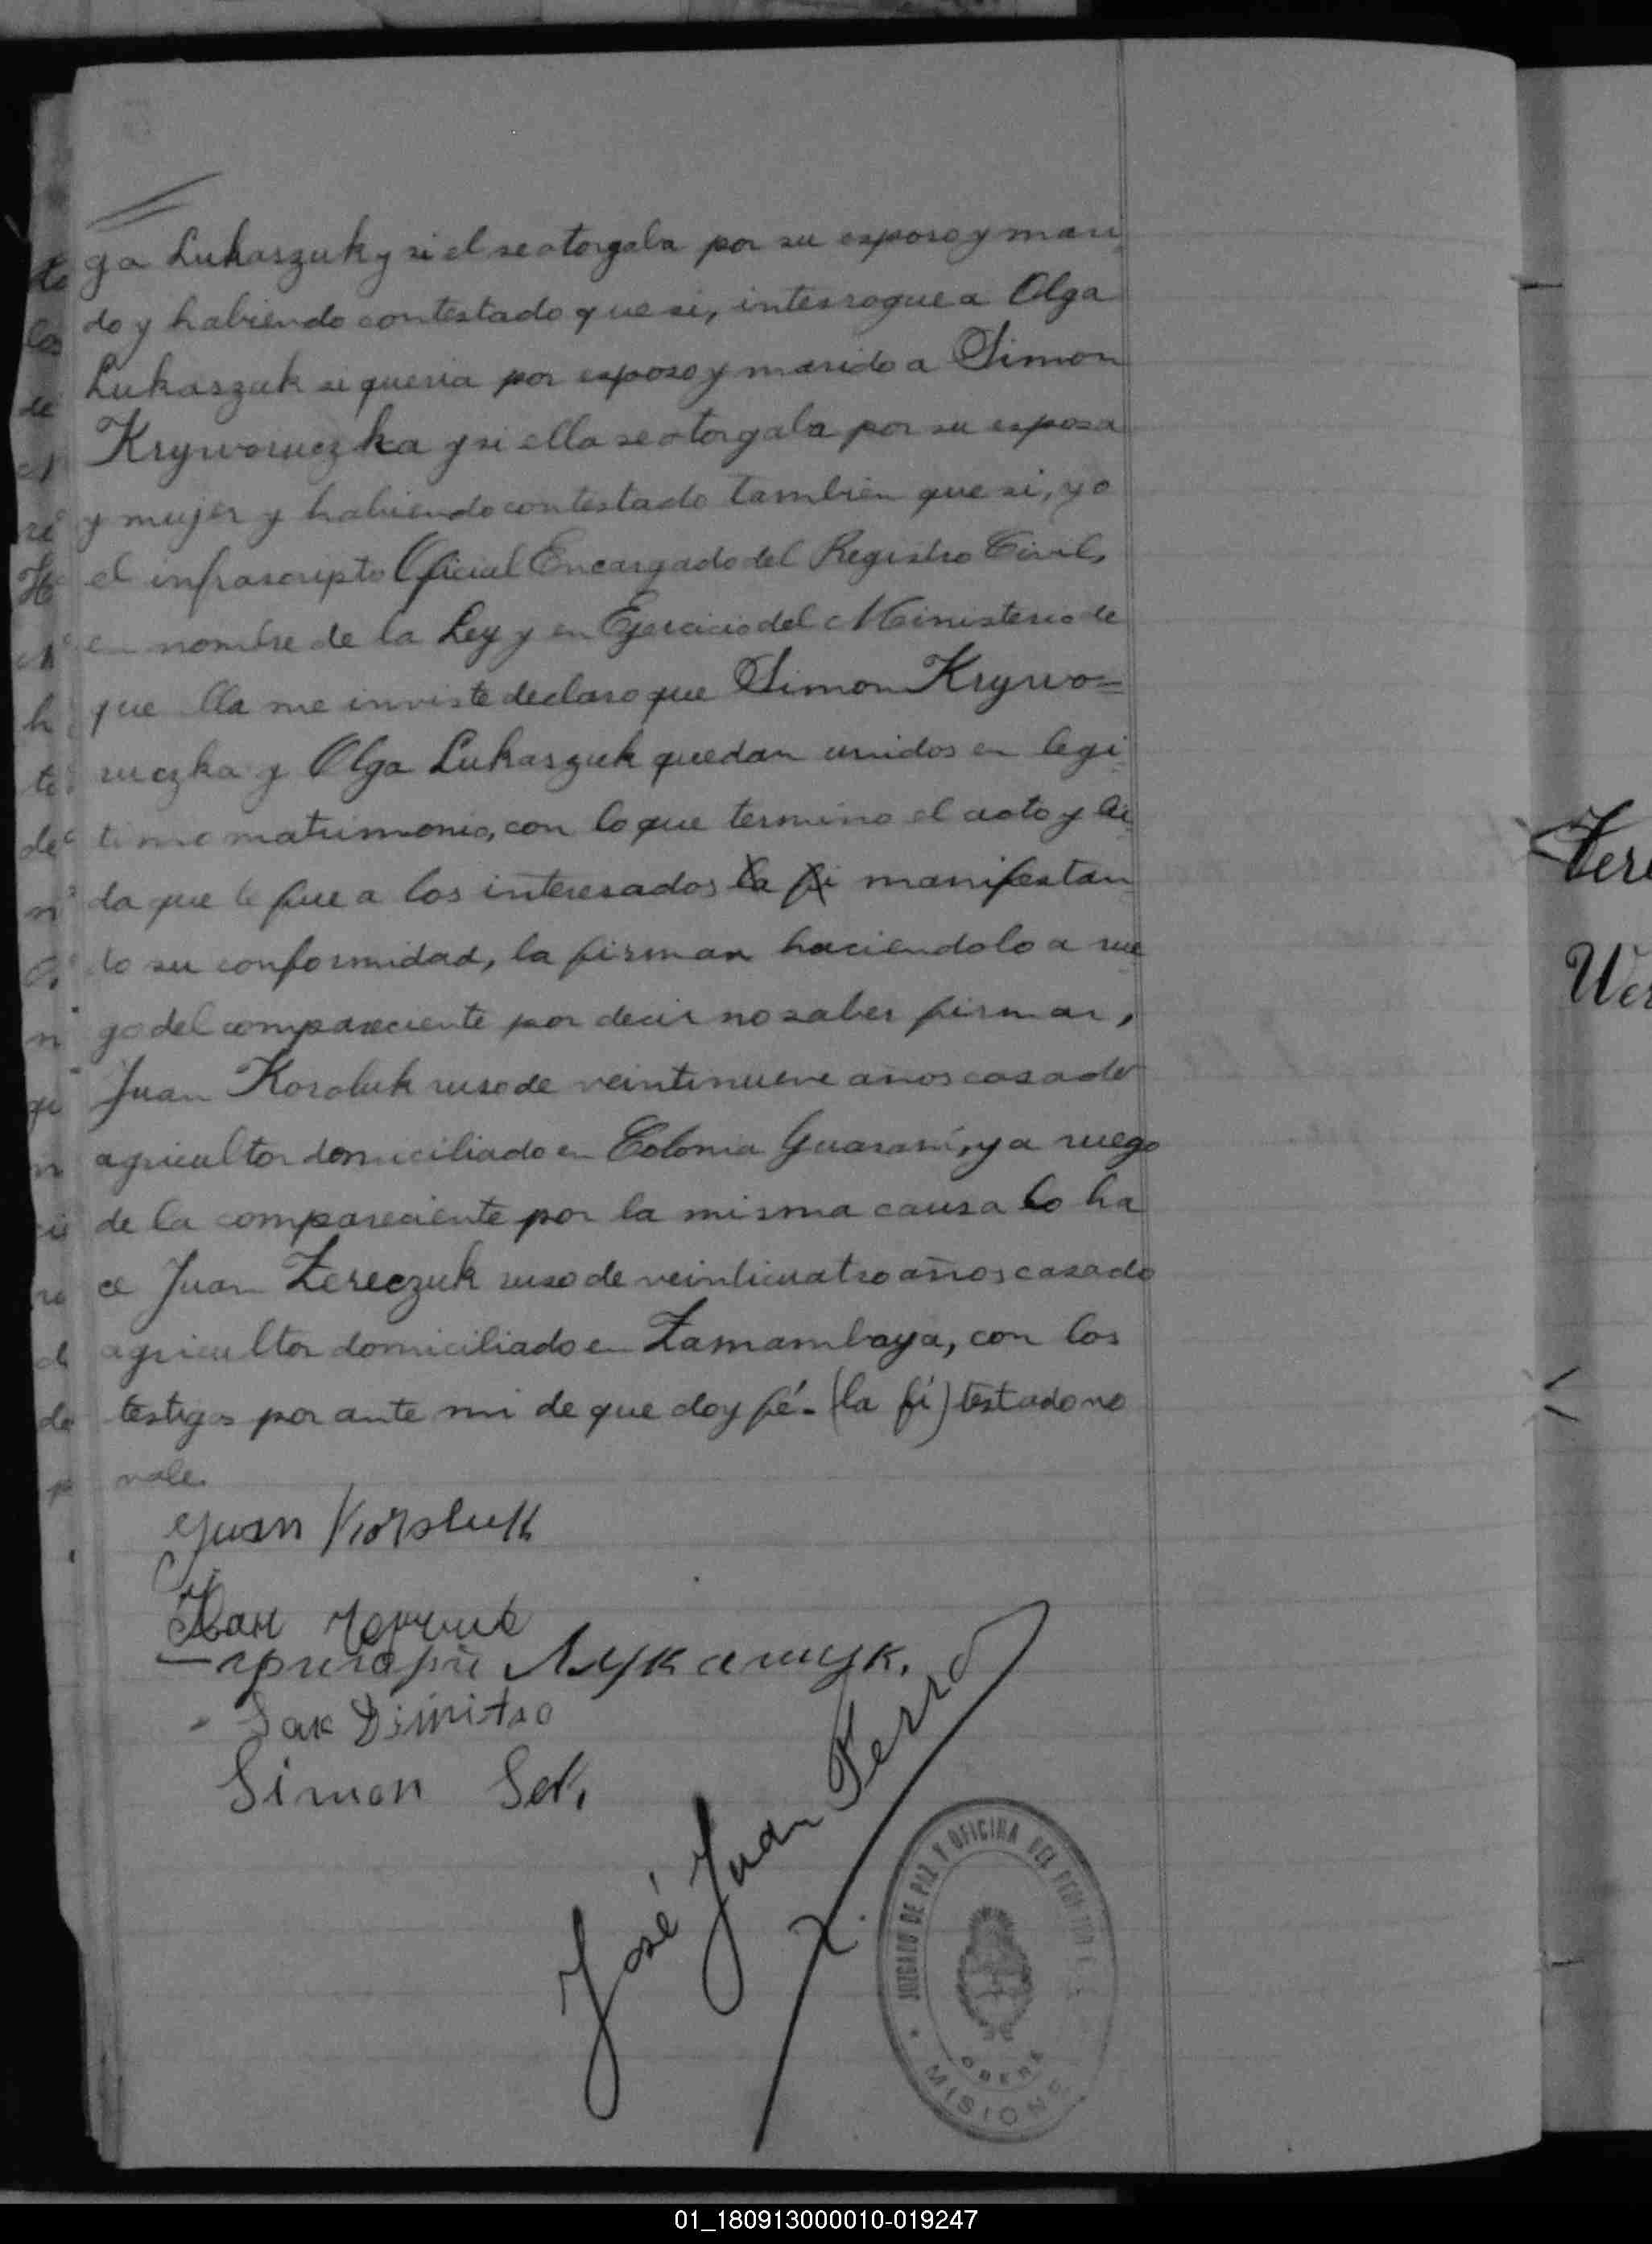 ga Lukaszuk y si el se otorgaba por su esposo y mari
do y habiendo contestado que si, interrogue a Olga
Lukaszuk si queria por esposo y marido a Simon
Kryworuczka y si ella se otorgaba por su esposa
y mujer y habiendo contestado tambien que si, yo
el infrascripto Oficial Encargado del Registro Civil,
en nombre de la Ley y en Ejercicio del Ministerio de
que lla me inviste declaro que Simon Krywo=
ruczka y Olga Lukaszuk quedan unidos en legi
timo matrimonio, con lo que termino el acto y lei
da que le fue a los interesados la fi manifestan
do su conformidad, la firman haciendolo a rue
go del compareciente por decir no saber firmar,
Juan Koroluk ruso de veintinueve años casado
agricultor domiciliado en Colonia Guaraní, y a ruego
de la compareciente por la misma causa lo ha
ce Juan Zereczuk ruso de veinticuatro años casado
agricultor domiciliado en Zamambaya, con los
testigos por ante mi de que doy fé.- (la fi) testado no
vale.
Juan Koroluk
Иван
Лукашук.
Sak Dimitro
Simon
José Juan Ferro
JUZGADO DE PAZ Y OFICINA DEL
OBERA
MISIONES
Zere
Wer
01_180913000010-019247